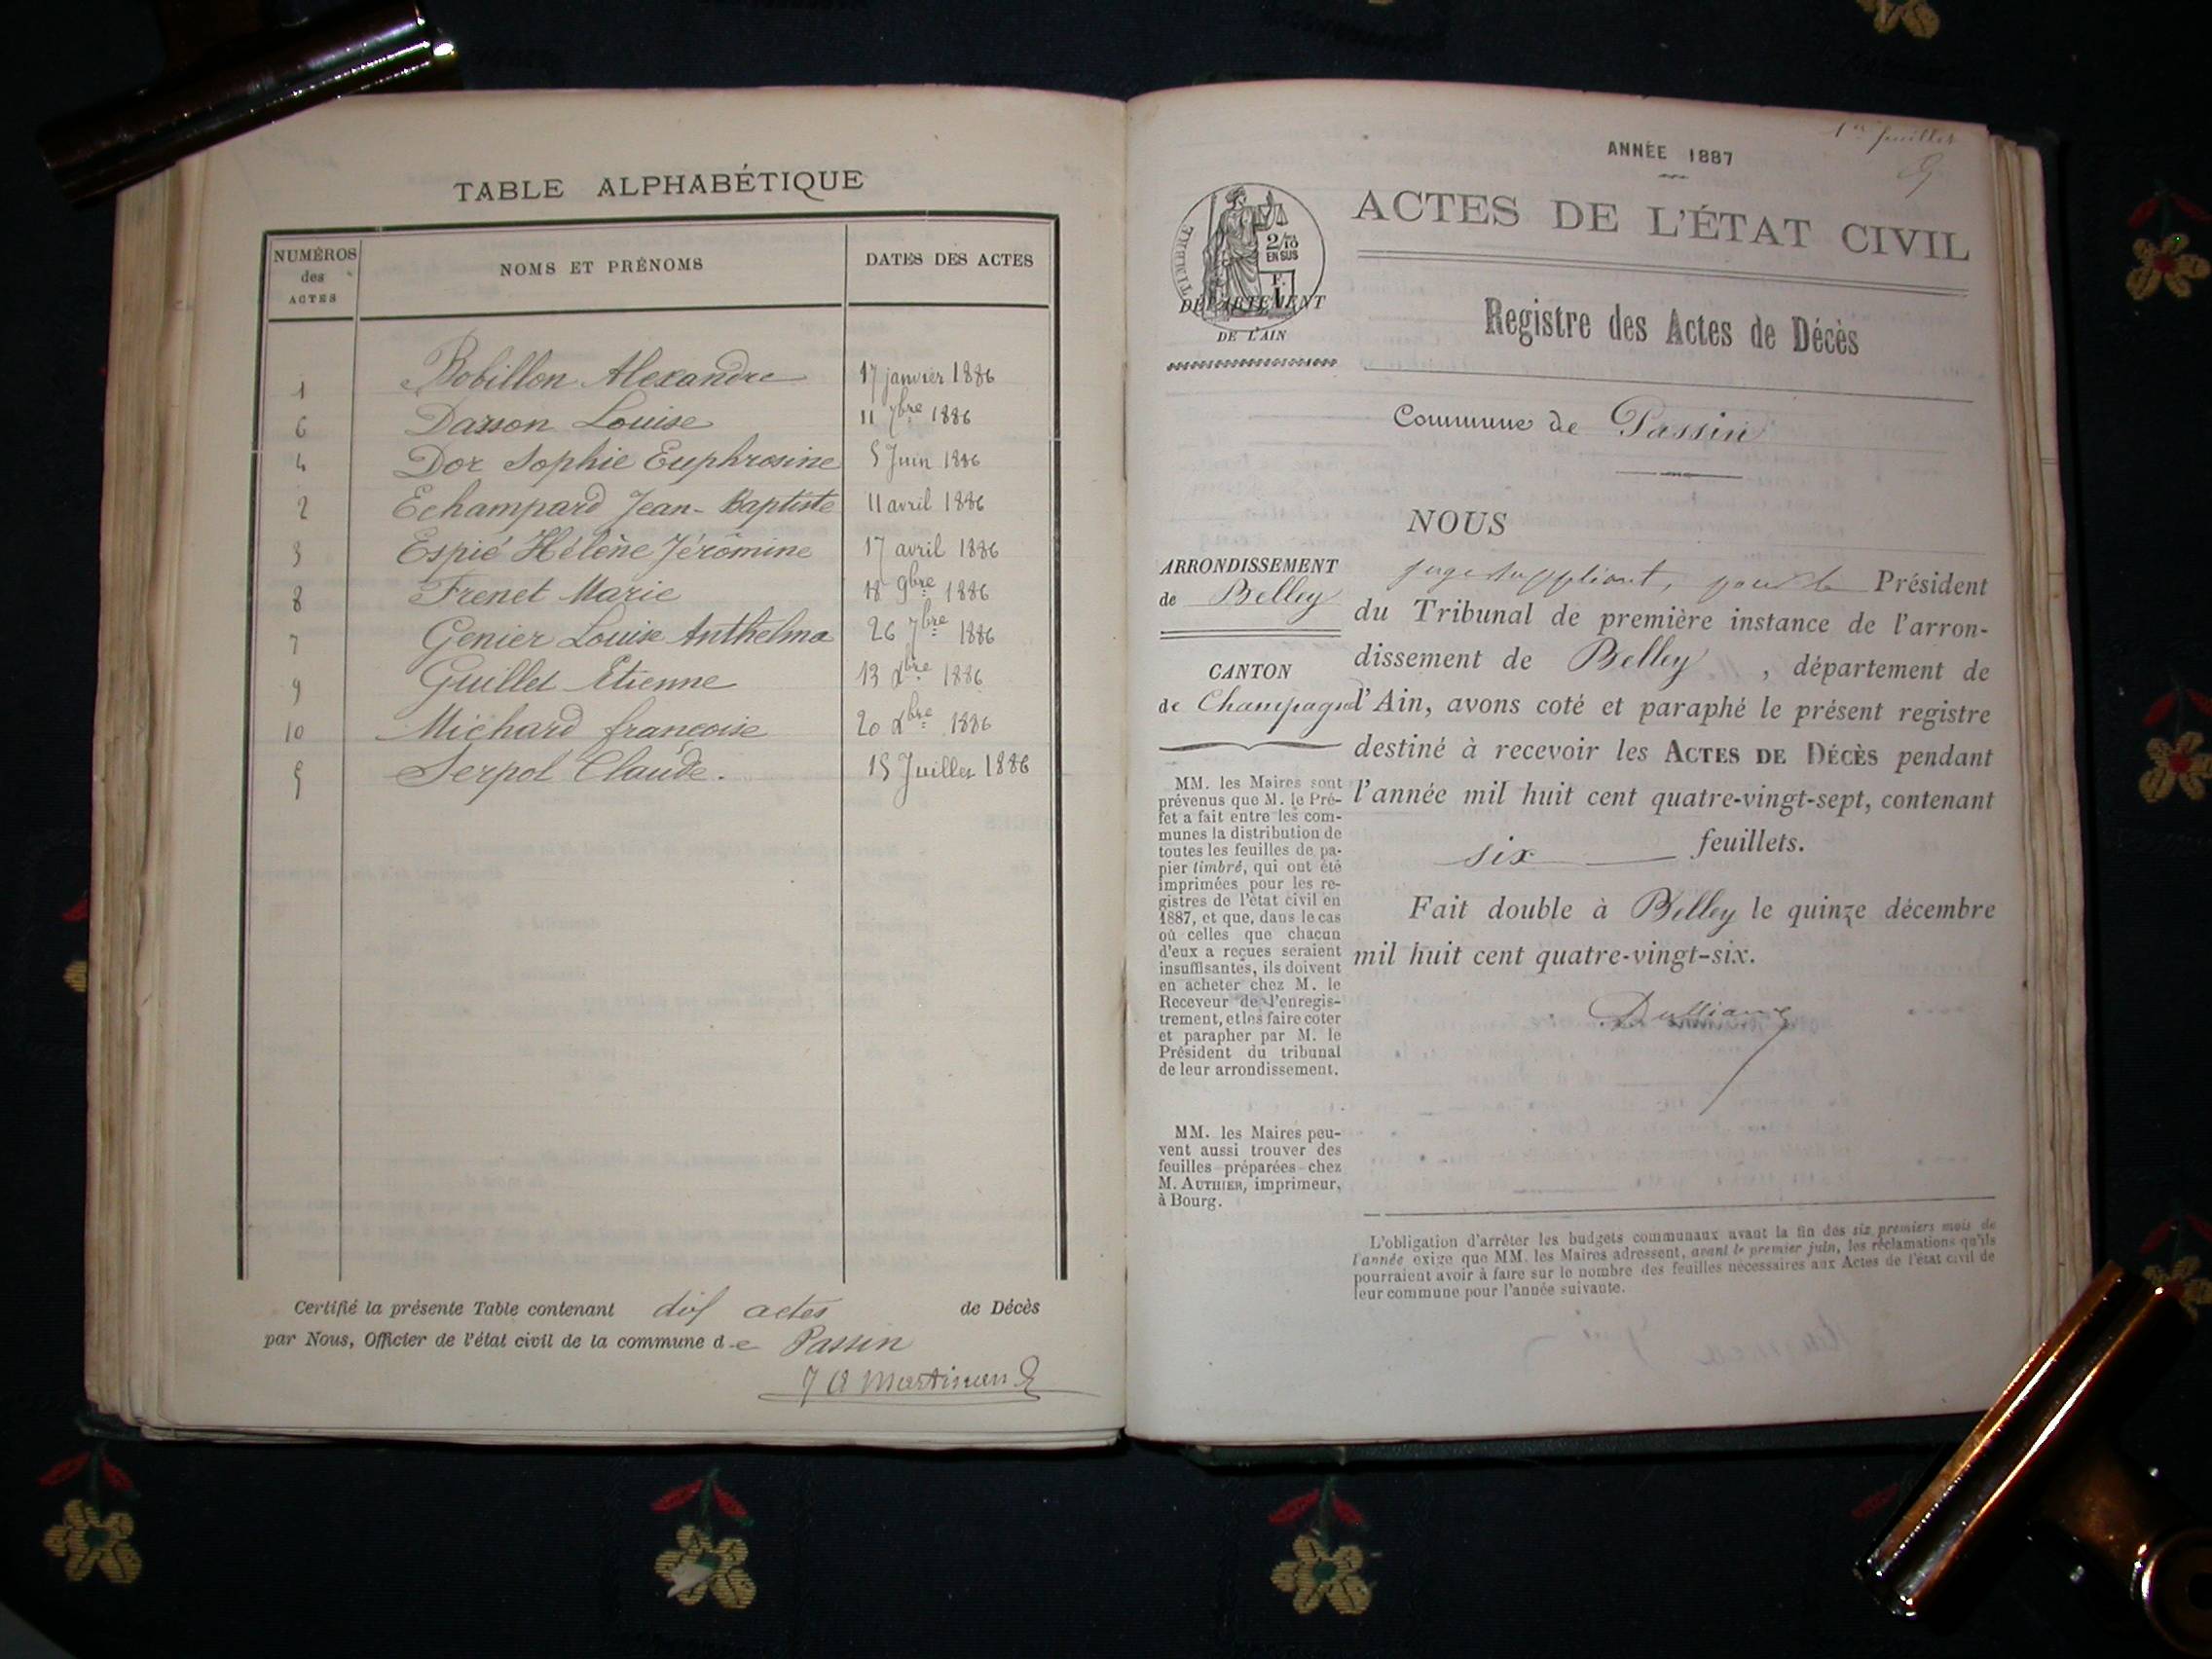 TABLE ALPHABÉTIQUE
NUMÉROS des ACTES NOMS ET PRÉNOMS DATES DES ACTES
1 Bobillon Alexandre 17 janvier 1886
6 Darson Louise 11 7bre 1886
4 Dor Sophie Euphrosine 5 Juin 1886
2 Echampard Jean-Baptiste 11 avril 1886
3 Espié Hélène Jérômine 17 avril 1886
8 Frenet Marie 18 9bre 1886
7 Genier Louise Anthelma 26 7bre 1886
9 Guillet Etienne 13 Xbre 1886
10 Michard françoise 20 Xbre 1886
5 Serpol Claude. 15 Juillet 1886
Certifié la présente Table contenant dix actes de Décès
par Nous, Officier de l'état civil de la commune de Passin
1er feuillet
ANNÉE 1887
ACTES DE L'ÉTAT CIVIL
TIMBRE
2/10
EN SUS
DÉPARTEMENT
DE L'AIN
Registre des Actes de Décès
Commune de Passin
ARRONDISSEMENT
de Belley
CANTON
de Champagne
MM. les Maires sont
prévenus que M. le Pré-
fet a fait entre les com-
munes la distribution de
toutes les feuilles de pa-
pier timbré, qui ont été
imprimées pour les re-
gistres de l'état civil en
1887, et que, dans le cas
où celles que chacun
d'eux a reçues seraient
insuffisantes, ils doivent
en acheter chez M. le
Receveur de l'enregis-
trement, et les faire coter
et parapher par M. le
Président du tribunal
de leur arrondissement.
MM. les Maires peu-
vent aussi trouver des
feuilles préparées chez
M. AUTHIER, imprimeur,
à Bourg.
NOUS
juge suppléant, pour le Président
du Tribunal de première instance de l'arron-
dissement de Belley, département de
l'Ain, avons coté et paraphé le présent registre
destiné à recevoir les ACTES DE DÉCÈS pendant
l'année mil huit cent quatre-vingt-sept, contenant
six feuillets.
Fait double à Belley le quinze décembre
mil huit cent quatre-vingt-six.
L'obligation d'arrêter les budgets communaux avant la fin des six premiers mois de
l'année exige que MM. les Maires adressent, avant le premier juin, les réclamations qu'ils
pourraient avoir à faire sur le nombre des feuilles nécessaires aux Actes de l'état civil de
leur commune pour l'année suivante.